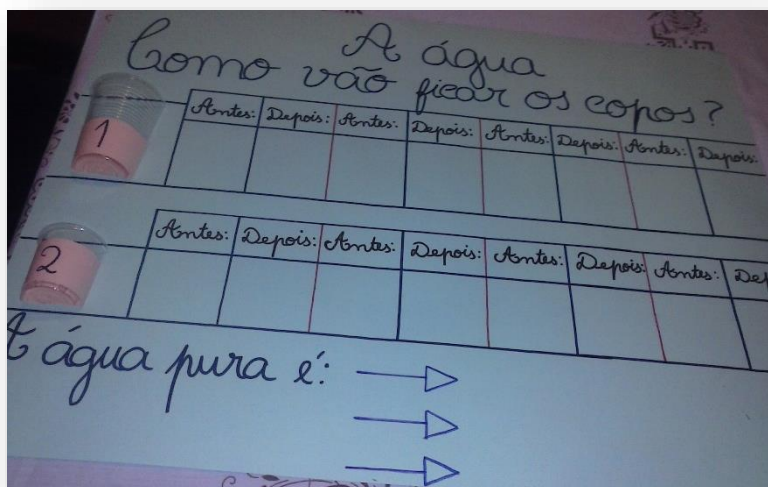 A água
Como vão ficar os copos?
1
Antes: Depois: Antes: Depois: Antes: Depois: Antes: Depois:
2
Antes: Depois: Antes: Depois: Antes: Depois: Antes: De
A água pura é: